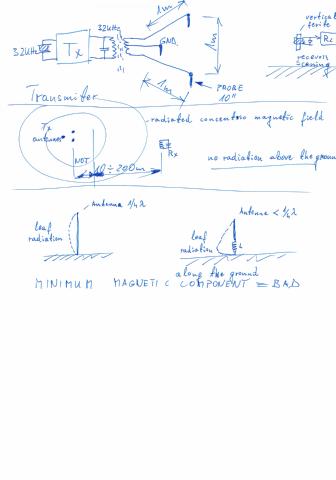 1m
32kHz
vertical
ferite
32kHz
Tx
GND
1m
Rx
receiver
1m
PROBE
10"
Transmiter
radiated concentric magnetic field
Tx
antennas
Rx
NOT
10 ÷ 200m
no radiation above the groun
Antenna 1/4 λ
Antenna < 1/4 λ
leaf
radiation
leaf
radiation
L
along the ground
MINIMUM MAGNETIC COMPONENT = BAD